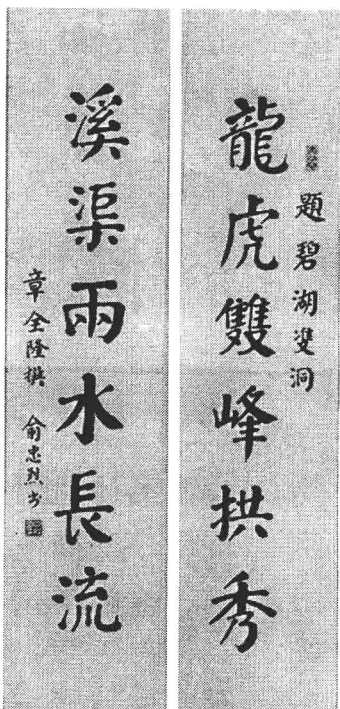 題碧湖双洞
龍虎雙峰拱秀
溪渠兩水長流
章全隆撰 俞忠烈书